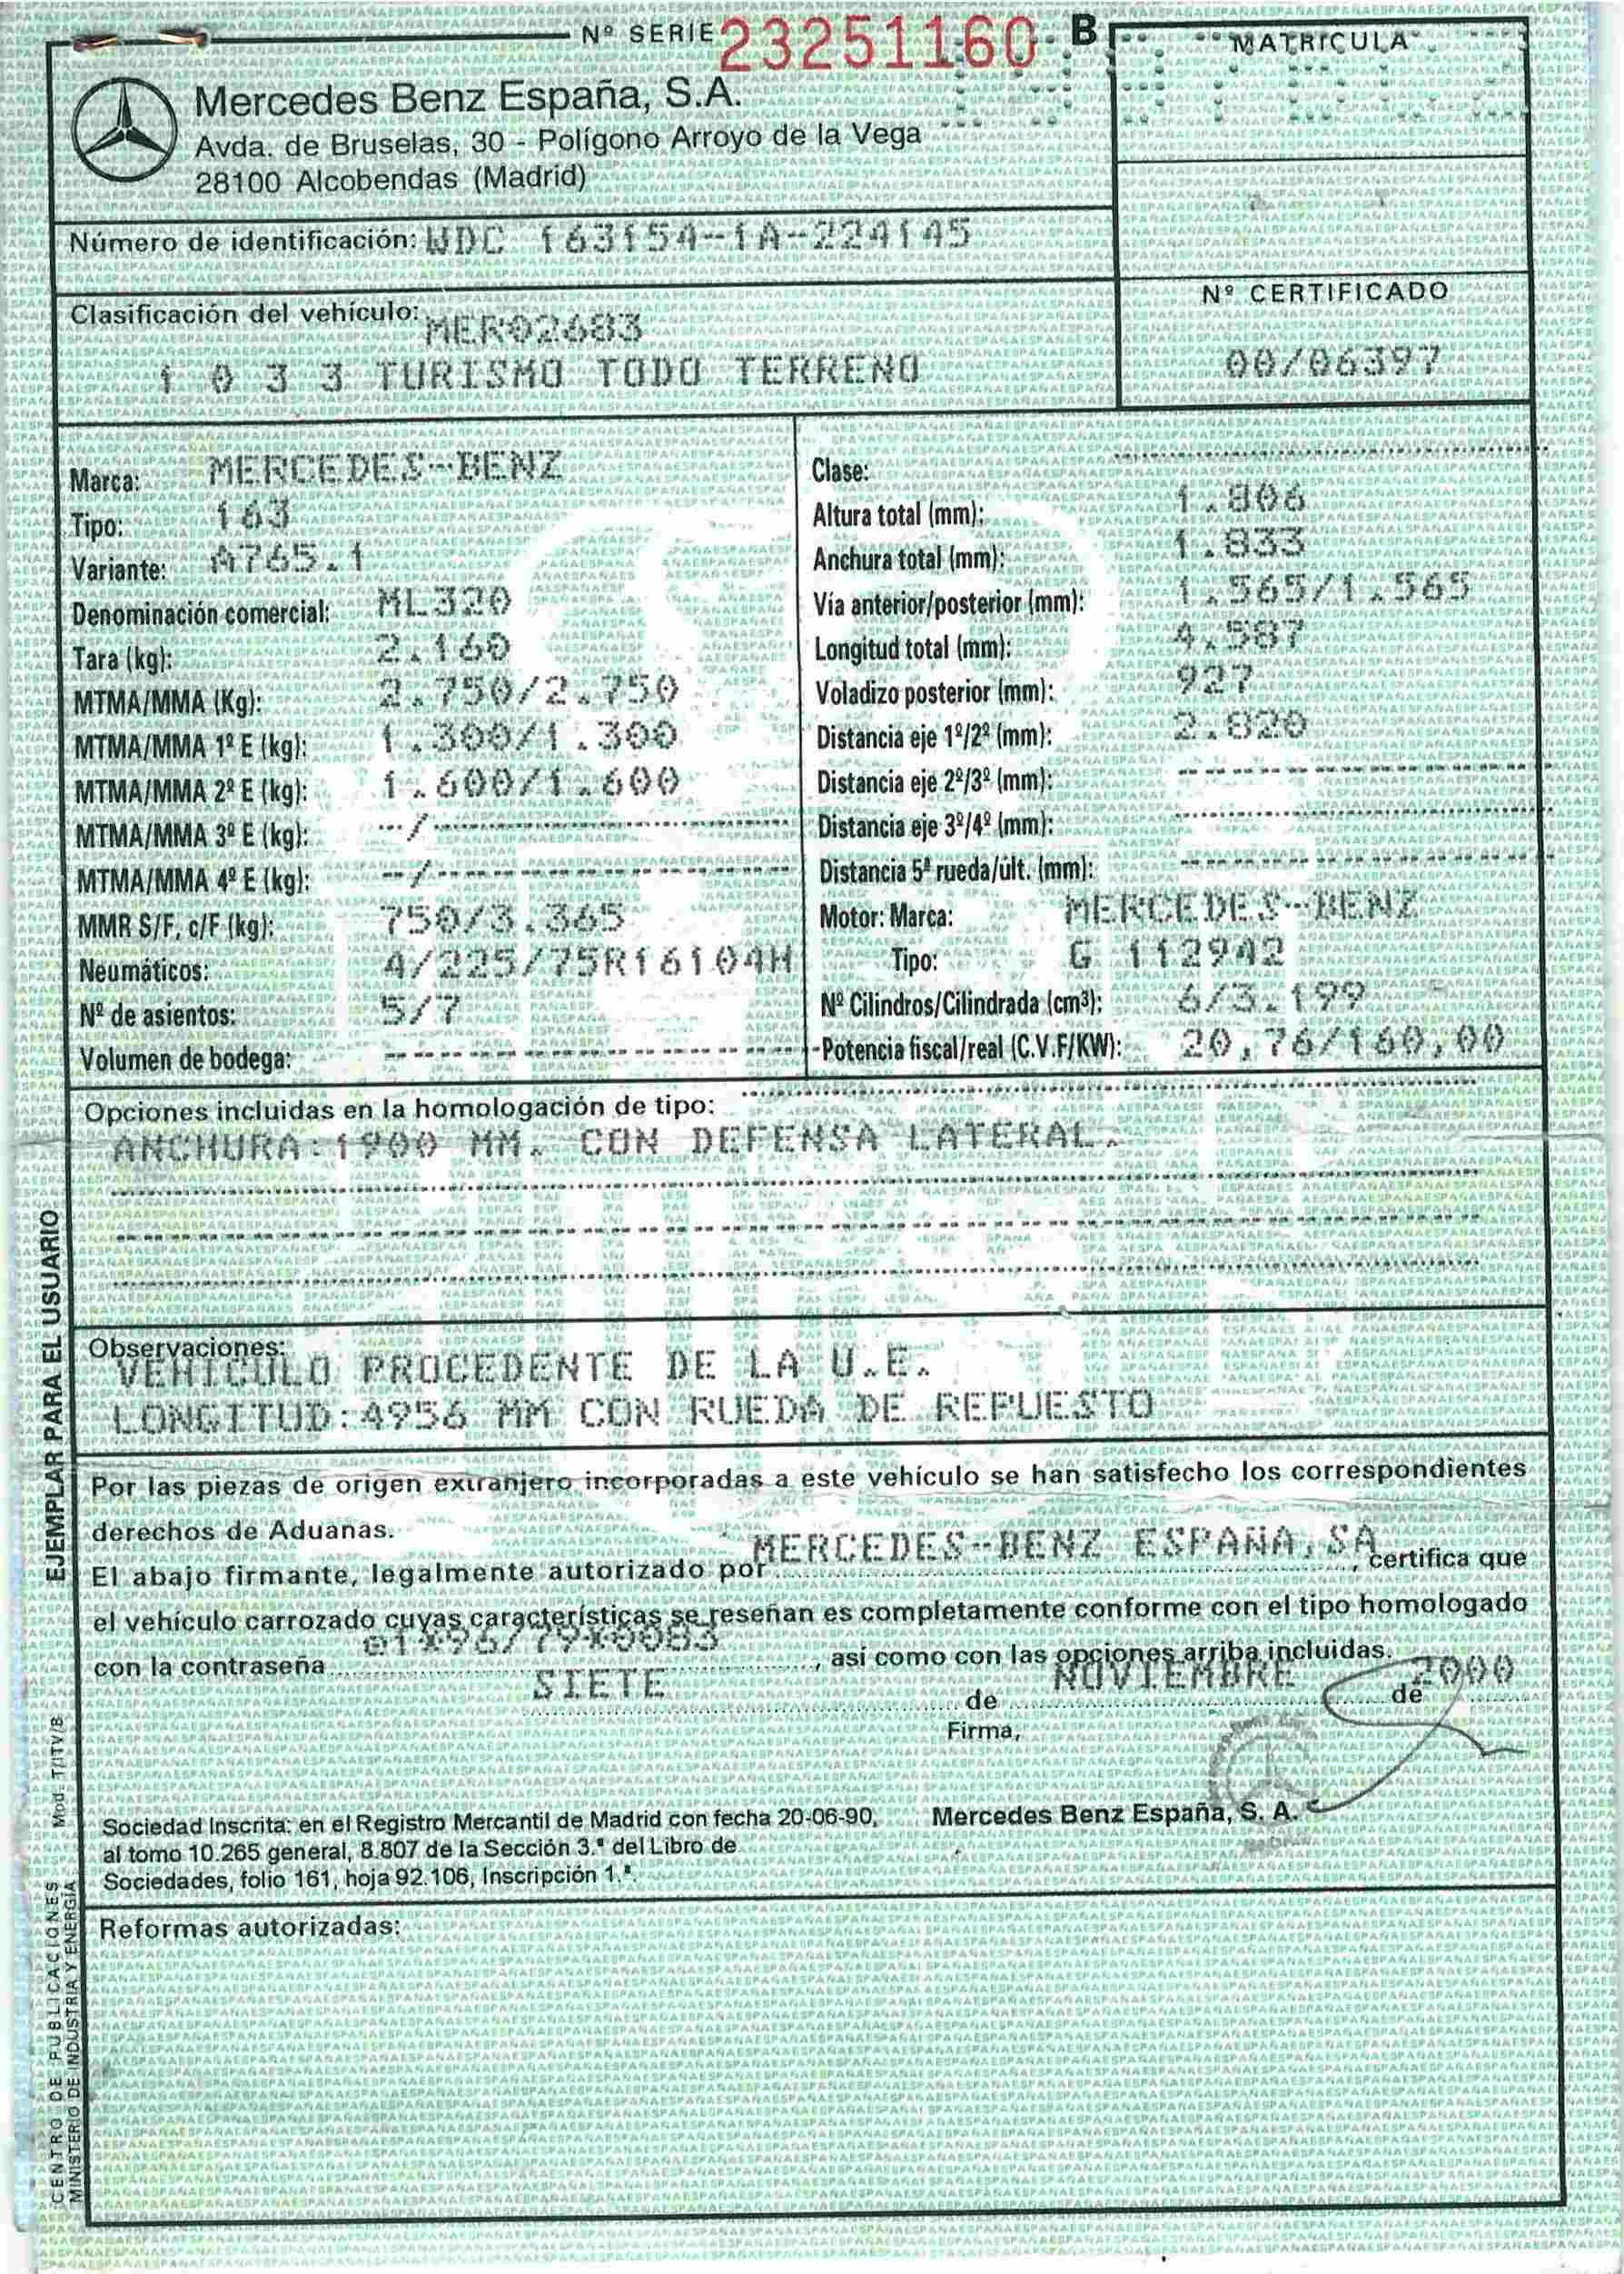 Nº SERIE 23251160 B
MATRICULA
Mercedes Benz España, S.A.
Avda. de Bruselas, 30 - Polígono Arroyo de la Vega
28100 Alcobendas (Madrid)
Número de identificación: WDC 163154-1A-224145
Clasificación del vehículo: MER02683
1 0 3 3 TURISMO TODO TERRENO
Nº CERTIFICADO
00/06397
Marca: MERCEDES-BENZ
Tipo: 163
Variante: A765.1
Denominación comercial: ML320
Tara (kg): 2.160
MTMA/MMA (Kg): 2.750/2.750
MTMA/MMA 1º E (kg): 1.300/1.300
MTMA/MMA 2º E (kg): 1.600/1.600
MTMA/MMA 3º E (kg): --/----------
MTMA/MMA 4º E (kg): --/----------
MMR S/F, c/F (kg): 750/3.365
Neumáticos: 4/225/75R16104H
Nº de asientos: 5/7
Volumen de bodega: ----------
Clase: ----------
Altura total (mm): 1.806
Anchura total (mm): 1.833
Vía anterior/posterior (mm): 1.565/1.565
Longitud total (mm): 4.587
Voladizo posterior (mm): 927
Distancia eje 1º/2º (mm): 2.820
Distancia eje 2º/3º (mm): ----------
Distancia eje 3º/4º (mm): ----------
Distancia 5ª rueda/últ. (mm): ----------
Motor: Marca: MERCEDES-BENZ
Tipo: G 112942
Nº Cilindros/Cilindrada (cm³): 6/3.199
Potencia fiscal/real (C.V.F/KW): 20,76/160,00
Opciones incluidas en la homologación de tipo:
ANCHURA:1900 MM. CON DEFENSA LATERAL.
Observaciones:
VEHICULO PROCEDENTE DE LA U.E.
LONGITUD:4956 MM CON RUEDA DE REPUESTO
Por las piezas de origen extranjero incorporadas a este vehículo se han satisfecho los correspondientes
derechos de Aduanas.
El abajo firmante, legalmente autorizado por MERCEDES-BENZ ESPAÑA,SA, certifica que
el vehículo carrozado cuyas características se reseñan es completamente conforme con el tipo homologado
con la contraseña e1*96/79*0083, así como con las opciones arriba incluidas.
SIETE de NOVIEMBRE de 2000
Firma,
Mercedes Benz España, S. A.
Sociedad Inscrita: en el Registro Mercantil de Madrid con fecha 20-06-90,
al tomo 10.265 general, 8.807 de la Sección 3.ª del Libro de
Sociedades, folio 161, hoja 92.106, Inscripción 1.ª.
Reformas autorizadas:
EJEMPLAR PARA EL USUARIO
Mod. T/ITV/B
CENTRO DE PUBLICACIONES
MINISTERIO DE INDUSTRIA Y ENERGIA